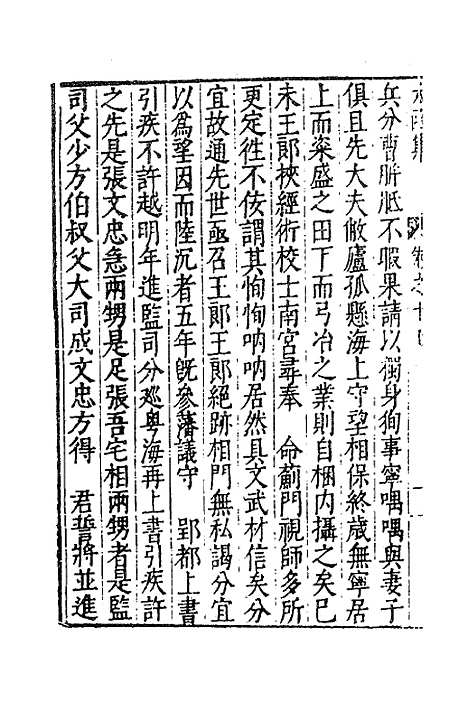 兵分曹胼胝不暇果請以獨身徇事寧喁喁與妻子
俱且先大夫敝廬孤懸海上守望相保終歲無寧居
上而粢盛之田下而弓冶之業則自梱內攝之矣已
未王郎挾經術校士南宮尋奉 命薊門視師多所
更定徃不佞謂其恂恂吶吶居然具文武材信矣分
宜故通先世亟召王郎王郎絕跡相門無私謁分宜
以爲望因而陸沉者五年旣參藩議守 郢都上書
引疾不許越明年進監司分廵粵海再上書引疾許
之先是張文忠急兩甥是足張吾宅相兩甥者是監
司父少方伯叔父大司成文忠方得 君誓將並進